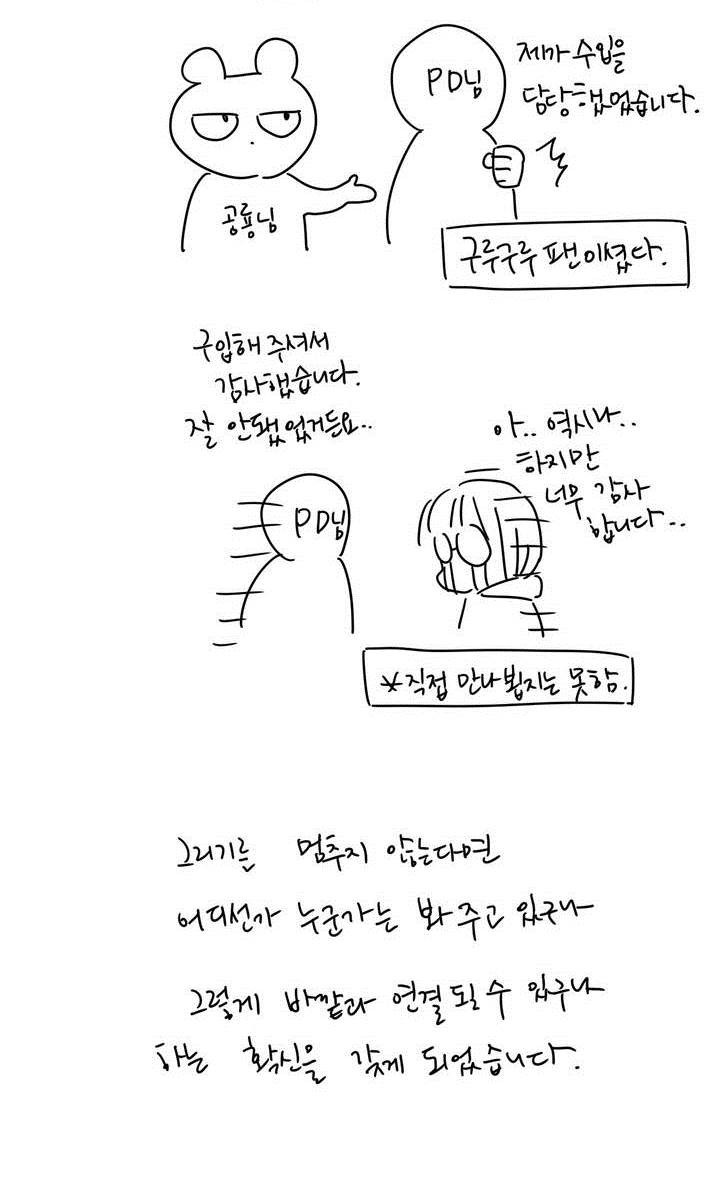 PD님
제가 수입을
담당했었습니다.
공룡님
구루구루 팬이셨다.
구입해 주셔서
감사했습니다.
잘 안됐었거든요..
아.. 역시나..
하지만
너무 감사
합니다..
PD님
*직접 만나뵙지는 못함.
그리기를 멈추지 않는다면
어디선가 누군가는 봐 주고 있구나
그렇게 바깥과 연결될 수 있구나
하는 확신을 갖게 되었습니다.